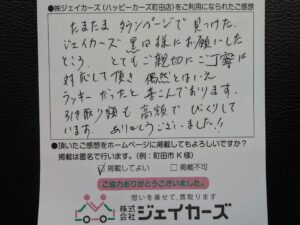 ●㈱ジェイカーズ(ハッピーカーズ町田店)をご利用になられたご感想
たまたま タウンページで 見つけた、
ジェイカーズ 黒田様にお願いした
ところ、とてもご親切にご丁寧に
対応して頂き 偶然とはいえ
ラッキーだったと 喜んでおります。
引き取り額も 高額で びっくりして
います。ありがとうございました!!
●頂いたご感想をホームページに掲載してもよろしいですか?
掲載は匿名で行います。(例:町田市K様)
掲載してよい 掲載不可
ご協力ありがとうございました。
想いを乗せて、買取ります
株式会社 ジェイカーズ